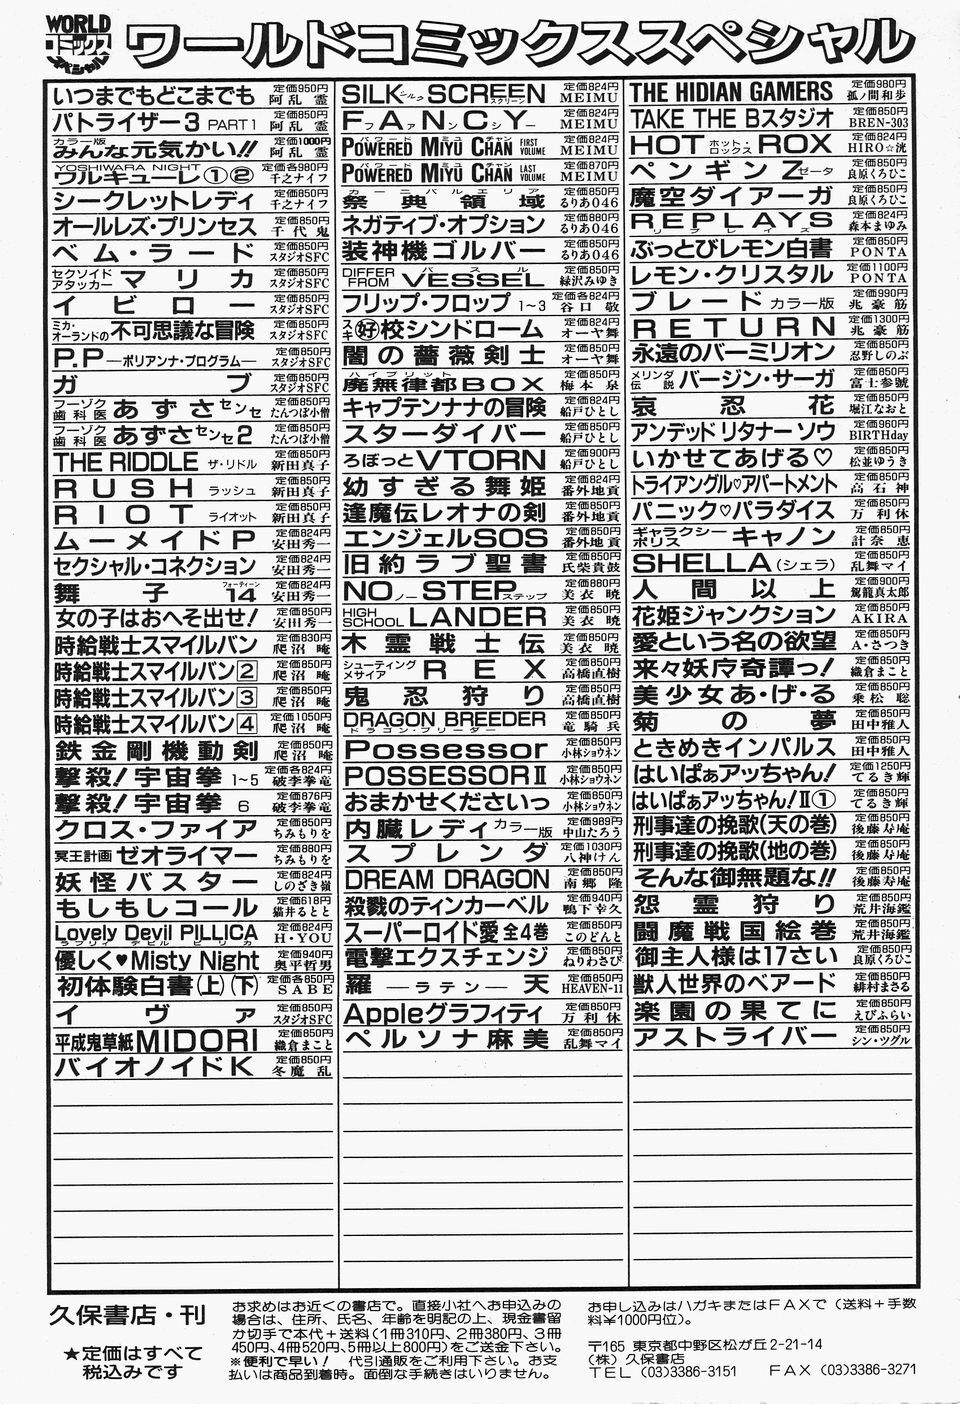 WORLD コミックス スペシャル ワールドコミックススペシャル
いつまでもどこまでも 定価950円 阿乱霊
パトライザー3 PART1 定価850円 阿乱霊
カラー版 みんな元気かい!! 定価1000円 阿乱霊
YOSHIWARA NIGHT ワルキューレ①② 定価各980円 千之ナイフ
シークレットレディ 定価850円 千之ナイフ
オールレズ・プリンセス 定価850円 千代鬼
ベム・ラード 定価850円 スタジオSFC
セクソイドアタッカー マリカ 定価850円 スタジオSFC
イビロー 定価850円 スタジオSFC
ミカ・オーランドの不可思議な冒険 定価850円 スタジオSFC
P.P—ポリアンナ・プログラム— 定価850円 スタジオSFC
ガブ 定価850円 スタジオSFC
フーゾク歯科医 あずさセンセ 定価850円 たんつぼ小僧
フーゾク歯科医 あずさセンセ2 定価850円 たんつぼ小僧
THE RIDDLE ザ・リドル 定価850円 新田真子
RUSH ラッシュ 定価850円 新田真子
RIOT ライオット 定価850円 新田真子
ムーメイドP 定価824円 安田秀一
セクシャル・コネクション 定価824円 安田秀一
舞子14 フォーティーン 定価824円 安田秀一
女の子はおへそ出せ! 定価850円 安田秀一
時給戦士スマイルバン 定価830円 爬沼唵
時給戦士スマイルバン2 定価850円 爬沼唵
時給戦士スマイルバン3 定価850円 爬沼唵
時給戦士スマイルバン4 定価1050円 爬沼唵
鉄金剛機動剣 定価850円 爬沼唵
撃殺!宇宙拳 1~5 定価各824円 破李拳竜
撃殺!宇宙拳 6 定価876円 破李拳竜
クロス・ファイア 定価850円 ちみもりを
冥王計画ゼオライマー 定価880円 ちみもりを
妖怪バスター 定価824円 しのざき嶺
もしもしコール 定価618円 猫井るとと
Lovely Devil PILLICA ラブリィ デビル ピリカ 定価824円 H・YOU
優しく♥Misty Night 定価940円 奥平哲男
初体験白書(上)(下) 定価各850円 SABE
イヴァ 定価850円 スタジオSFC
平成鬼草紙MIDORI 定価850円 織倉まこと
バイオノイドK 定価850円 冬魔乱
SILK シルク SCREEN スクリーン 定価824円 MEIMU
FANCY ファンシー 定価824円 MEIMU
POWERED MIYU CHAN パワード ミュ チャン FIRST VOLUME 定価824円 MEIMU
POWERED MIYU CHAN パワード ミュ チャン LAST VOLUME 定価870円 MEIMU
祭典領域 カーニバルエリア 定価850円 るりあ046
ネガティブ・オプション 定価880円 るりあ046
装神機ゴルバー 定価850円 るりあ046
DIFFER FROM VESSEL バスル 定価850円 緑沢みゆき
フリップ・フロップ 1~3 定価各824円 谷口敬
スキ㊝校シンドローム 定価824円 オーヤ舞
闇の薔薇剣士 定価850円 オーヤ舞
廃無律都BOX ハイブリット 定価850円 梅本泉
キャプテンナナの冒険 定価824円 船戸ひとし
スターダイバー 定価850円 船戸ひとし
ろぼっとVTORN 定価900円 船戸ひとし
幼すぎる舞姫 定価850円 番外地貢
逢魔伝レオナの剣 定価850円 番外地貢
エンジェルSOS 定価850円 番外地貢
旧約ラブ聖書 定価850円 氏柴貴鼓
NO ノー STEP ステップ 定価880円 美衣暁
HIGH SCHOOL LANDER 定価850円 美衣暁
木霊戦士伝 定価850円 美衣暁
シューティングメサイア REX 定価850円 高橋直樹
鬼忍狩り 定価850円 高橋直樹
DRAGON BREEDER ドラゴン・ブリーダー 定価850円 竜騎兵
Possessor 定価850円 小林ショウネン
POSSESSORⅡ 定価850円 小林ショウネン
おまかせくださいっ 定価850円 小林ショウネン
内臓レディ カラー版 定価989円 中山たろう
スプレンダ 定価1030円 八神けん
DREAM DRAGON 定価850円 南郷隆
殺戮のティンカーベル 定価940円 鴨下幸久
スーパーロイド愛 全4巻 定価850円 このどんと
電撃エクスチェンジ 定価850円 ねりわさび
羅—ラテン—天 定価850円 HEAVEN-11
Appleグラフィティ 定価850円 万利休
ペルソナ麻美 定価850円 乱舞マイ
THE HIDIAN GAMERS 定価980円 孤ノ間和歩
TAKE THE Bスタジオ 定価850円 BREN-303
HOT ROX ホットロックス 定価824円 HIRO☆洸
ペンギンZ ゼータ 定価850円 良原くろひこ
魔空ダイアーガ 定価850円 良原くろひこ
REPLAYS リプレイズ 定価824円 森本まゆみ
ぶっとびレモン白書 定価850円 PONTA
レモン・クリスタル 定価1100円 PONTA
ブレード カラー版 定価990円 兆豪筋
RETURN 定価1300円 兆豪筋
永遠のバーミリオン 定価850円 忍野しのぶ
メリンダ伝説 バージン・サーガ 定価850円 富士参號
哀忍花 定価850円 堀江なおと
アンデッド リタナー ソウ 定価960円 BIRTHday
いかせてあげる♡ 定価850円 松並ゆうき
トライアングル♡アパートメント 定価850円 高石神
パニック♡パラダイス 定価850円 万利休
ギャラクシーポリス キャノン 定価850円 計奈恵
SHELLA(シェラ) 定価850円 乱舞マイ
人間以上 定価900円 駕籠真太郎
花姫ジャンクション 定価850円 AKIRA
愛という名の欲望 定価850円 A・さつき
来々妖庤奇譚っ! 定価850円 織倉まこと
美少女あ・げ・る 定価850円 乗松聡
菊の夢 定価850円 田中雅人
ときめきインパルス 定価850円 田中雅人
はいぱぁアッちゃん! 定価1250円 てるき輝
はいぱぁアッちゃん!Ⅱ① 定価850円 てるき輝
刑事達の挽歌(天の巻) 定価850円 後藤寿庵
刑事達の挽歌(地の巻) 定価850円 後藤寿庵
そんな御無題な!! 定価850円 後藤寿庵
怨霊狩り 定価850円 荒井海鑑
闘魔戦国絵巻 定価850円 荒井海鑑
御主人様は17さい 定価850円 良原くろひこ
獣人世界のベアード 定価850円 緋村まさる
楽園の果てに 定価850円 えびふらい
アストライバー 定価850円 シン・ツグル
久保書店・刊
★定価はすべて
税込みです
お求めはお近くの書店で。直接小社へお申込みの
場合は、住所、氏名、年齢を明記の上、現金書留
か切手で本代+送料(1冊310円、2冊380円、3冊
450円、4冊520円、5冊以上800円)をご送金下さい。
※便利で早い! 代引通販をご利用下さい。お支
払いは商品到着時。面倒な手続きはいりません。
お申し込みはハガキまたはFAXで(送料+手数
料¥1000円位)。
〒165 東京都中野区松が丘2-21-14
(株)久保書店
TEL (03)3386-3151 FAX (03)3386-3271